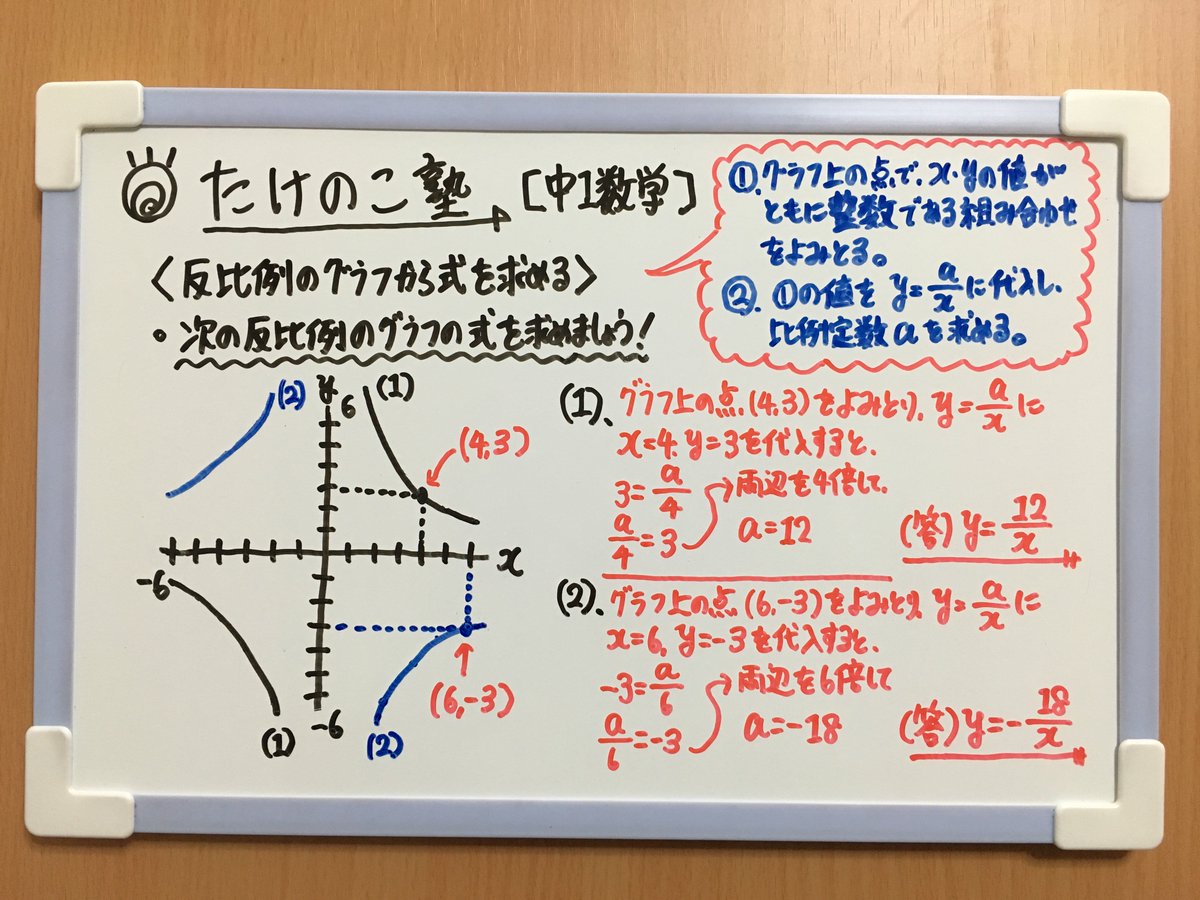 たけのこ塾 [中1数学]
<反比例のグラフから式を求める>
・次の反比例のグラフの式を求めましょう!
①.グラフ上の点で、x・yの値が
ともに整数である組み合わせ
をよみとる。
②.①の値を y=a/xに代入し、
比例定数aを求める。
(2) y 6 (1)
(4,3)
x
-6
(6,-3)
(1) -6 (2)
(1)、グラフ上の点(4,3)をよみとり、y=a/xに
x=4, y=3を代入すると、
3=a/4 両辺を4倍して、
a/4=3 a=12 (答) y=12/x
(2)、グラフ上の点(6,-3)をよみとり、y=a/xに
x=6, y=-3を代入すると、
-3=a/6 両辺を6倍して
a/6=-3 a=-18 (答) y=-18/x